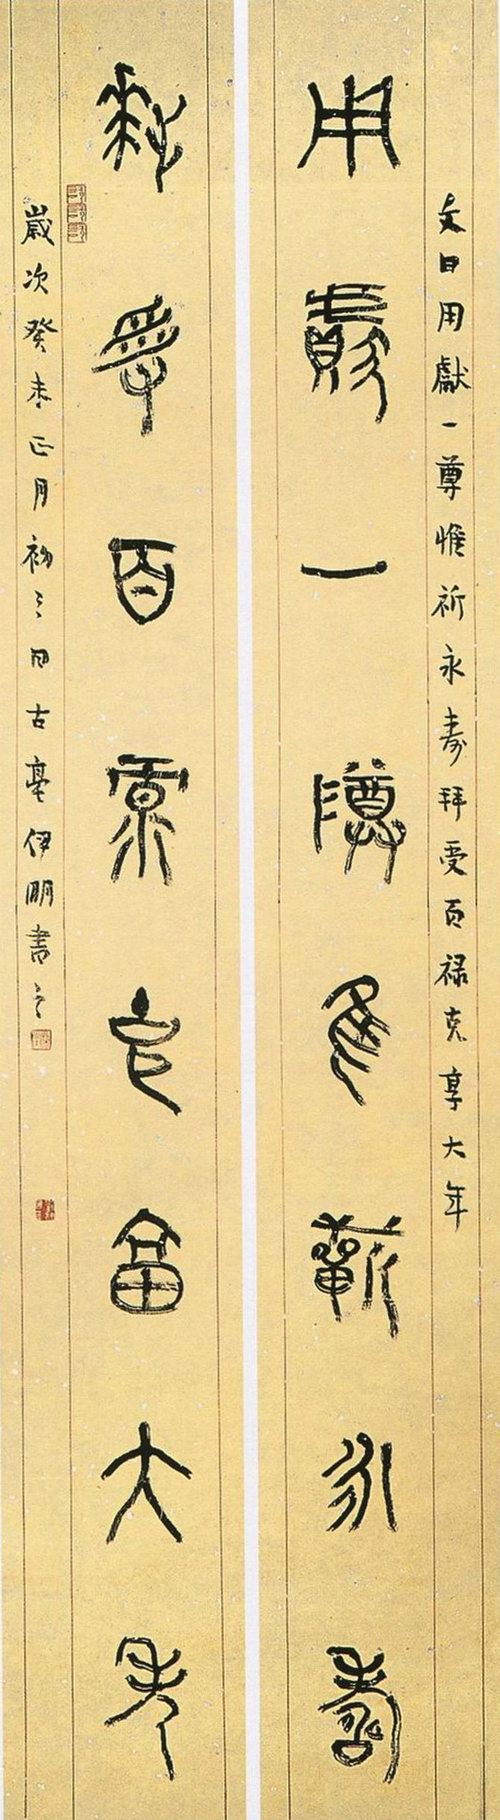 文曰用獻一尊惟祈永寿拜受百禄克享大年
用獻一尊隹祈永壽
拜受百祿克享大年
歲次癸未正月初三日古亳伊明書之